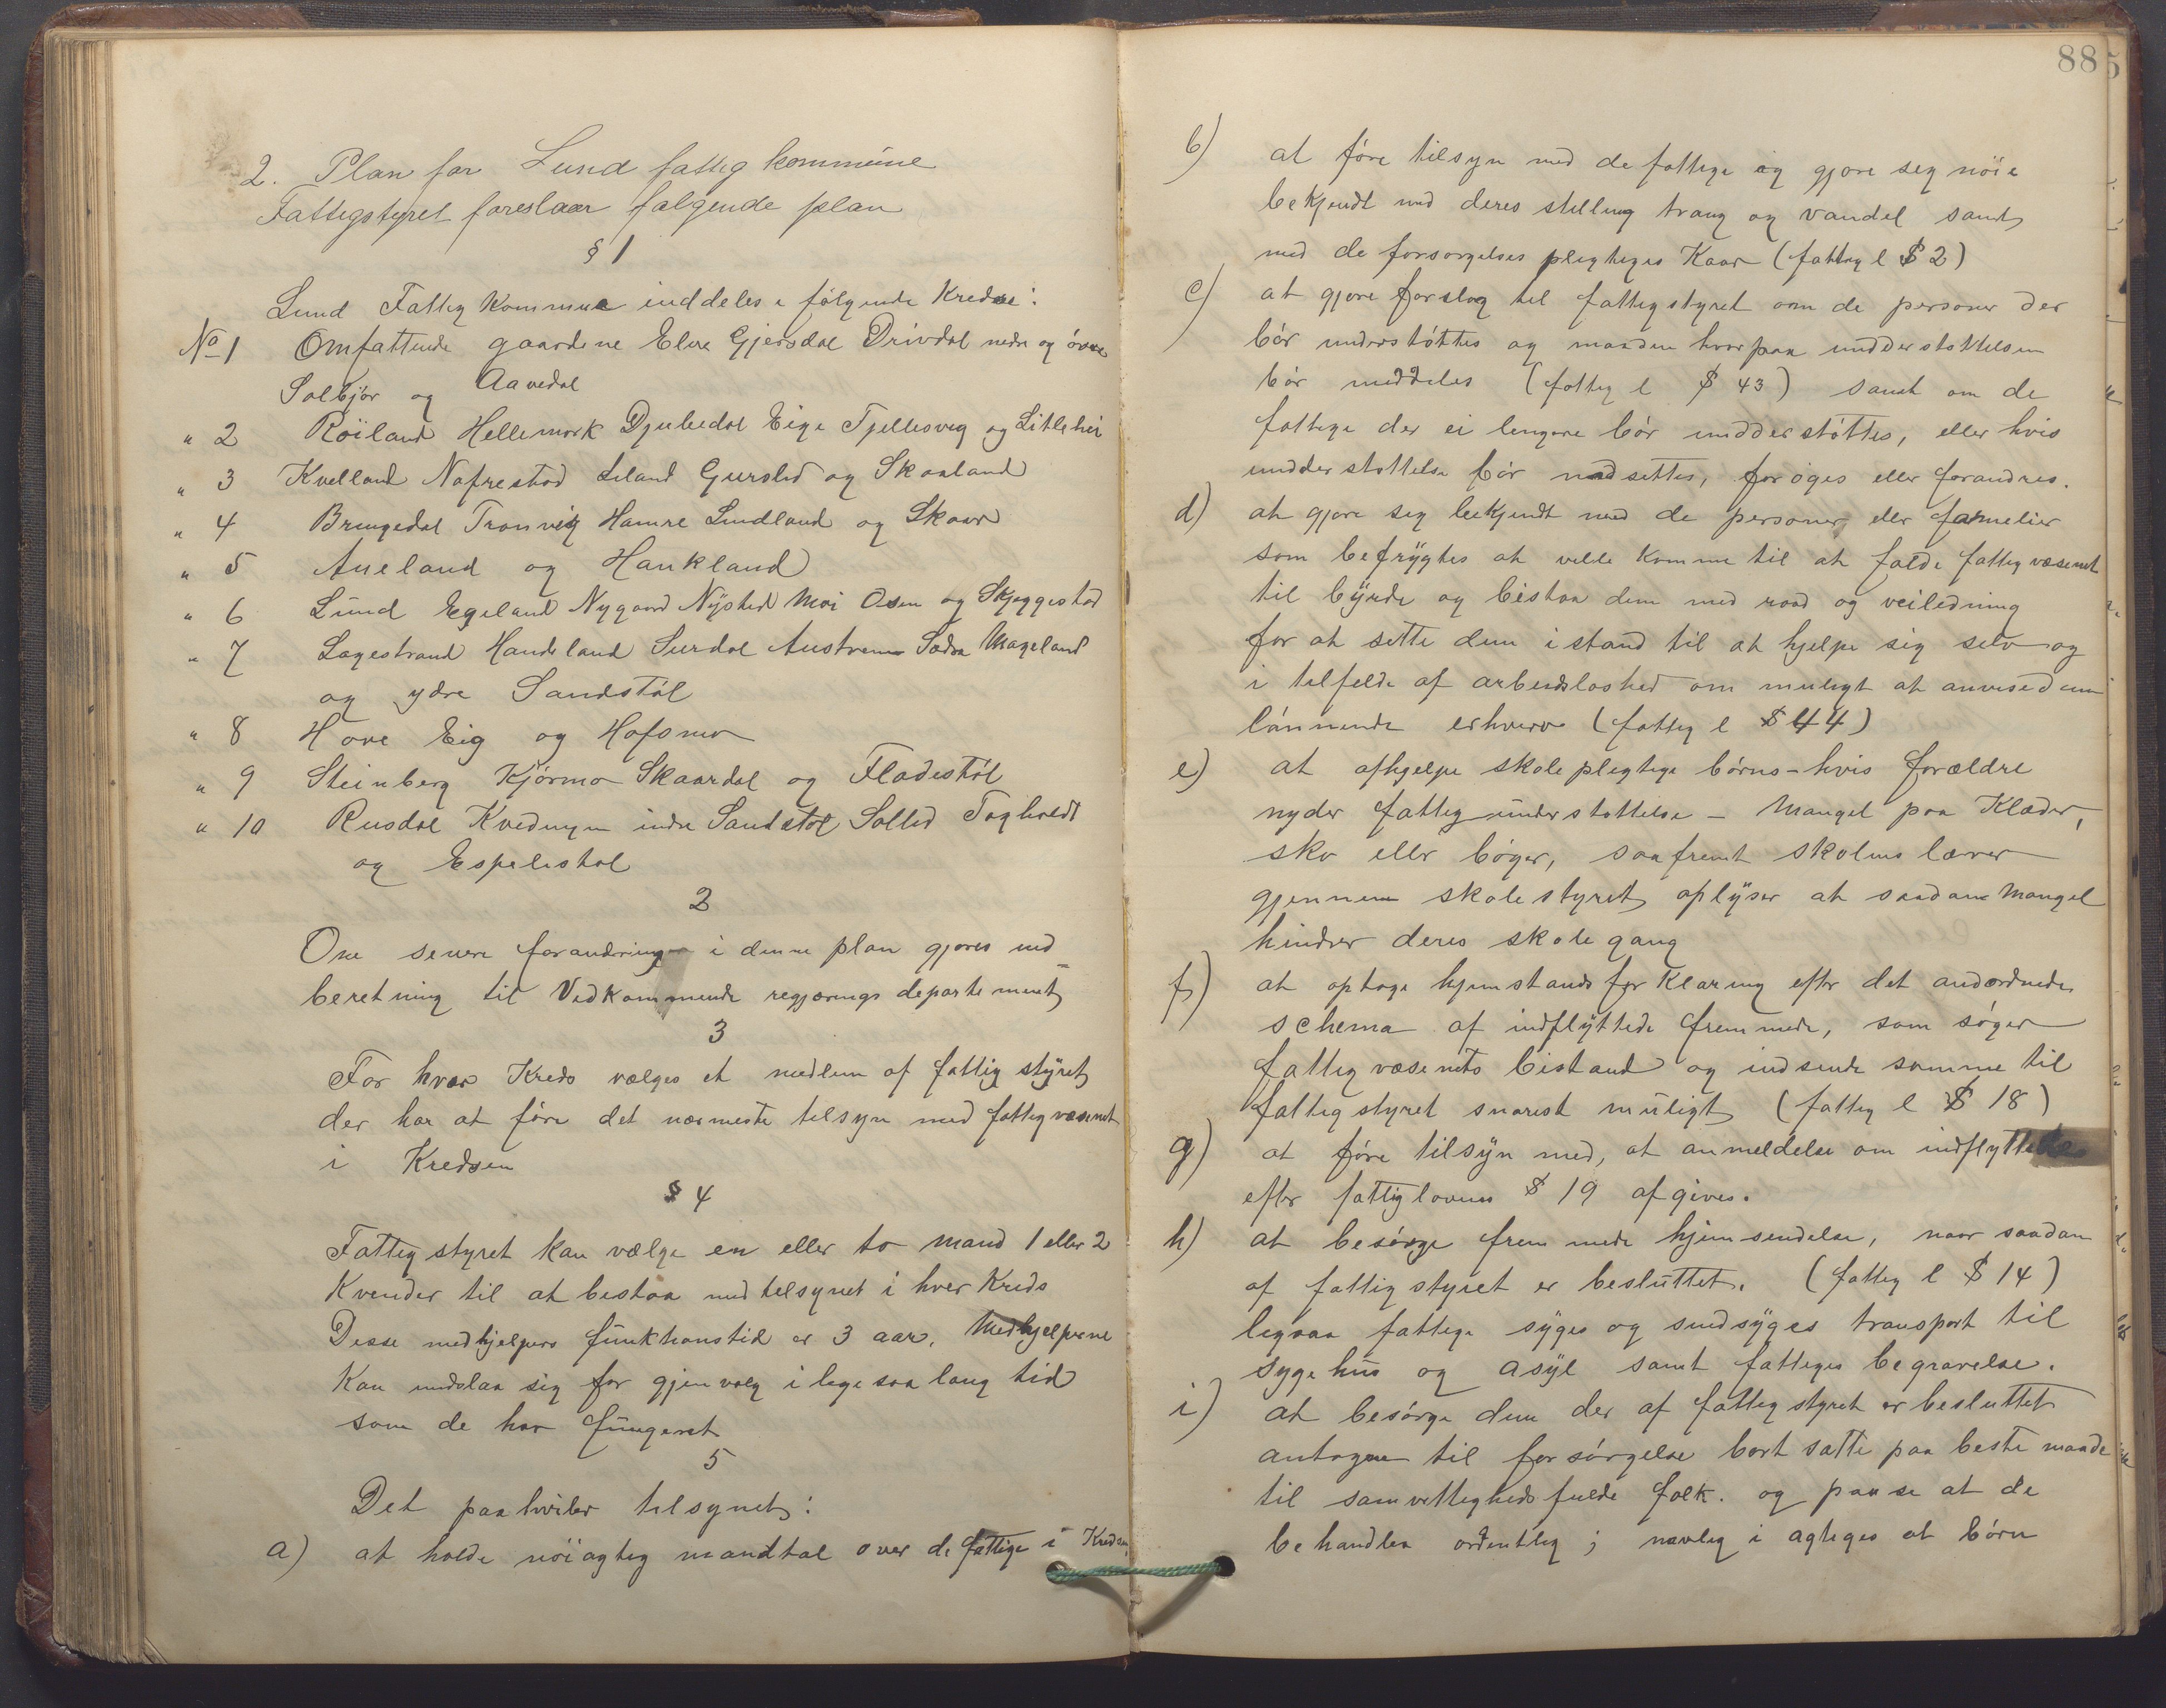 2. Plan for Lund fattig kommune
Fattigstyret foreslaar følgende plan
§ 1
Lund Fattig Kommune inddeles i følgende Kredse:
No 1 Omfattende gaardene Elve Gjersdal Drivdal nedre og øvre
Solbjør og Aavedal
" 2 Røiland Hellemork Djubedal Eige Tjellesvig og Litlehei
" 3 Kvelland Nafrestad Leland Gursled og Skaaland
" 4 Bringedal Tronvig Hamre Lindland og Skaar
" 5 Aneland og Haukland
" 6 Lund Egeland Nygaard Nysted Moi Osen og Skjeggestad
" 7 Lagestrand Handeland Surdal Austrem Mageland
og ydre Sandstøl
" 8 Hove Eig og Hofsmo
" 9 Steinberg Kjørmo Skaardal og Fladestøl
" 10 Rusdal Kvednyn indre Sandstøl Solled
og Espelistøl
2
Om senere forandringer i denne plan gjøres ind=
beretning til Vedkommende regjerings departement
3
For hver Kreds vælges et medlem af fattig styret
der har at føre det nærmeste tilsyn med fattigvæsenet
i Kredsen
§ 4
Fattig styret kan vælge en eller to mand 1 eller 2
Kvinder til at bistaa med tilsynet i hver Kreds
Disse medhjelpers funktionstid er 3 aar. Medhjelperne
Kan undslaa sig for gjenvalg i lige saa lang tid
som de har fungeret
5
Det paahviler tilsynet:
a) at holde nøiagtig mandtal over de fattige i Kredsen
88
b) at føre tilsyn med de fattige og gjøre sig nøie
bekjendt med deres stilling trang og vandel samt
med de forsørgelses pligtiges Kaar (fattig l § 2)
c) at gjøre forslag til fattigstyret om de personer der
bør understøttes og maaden hvorpaa undderstøttelsen
bør meddeles (fattig l § 43) samt om de
fattige der ei lengere bør undderstøttes, eller hvis
undderstøttelse bør nedsettes, forøges eller forandres.
d) at gjøre sig bekjendt med de personer eller familier
som befrygtes at ville komme til at falde fattigvæsenet
til byrde og bistaa dem med raad og veiledning
for at sette dem i stand til at hjelpe sig selv og
i tilfelde af arbeidsløshed om muligt at anvise dem
lønnende erhverv (fattig l § 44)
e) at afhjelpe skolepligtige børns - hvis forældre
nyder fattigunderstøttelse - Mangel paa Klæder,
sko eller bøger, saafremt skolens lærer
gjennem skolestyret oplyser at saadan Mangel
hindrer deres skolegang
f) at optage hjemstandsforklaring efter det anordnede
schema af indflyttede fremmede, som søger
fattigvæsenets bistand og indsende samme til
fattigstyret snarest muligt (fattig l § 18)
g) at føre tilsyn med, at anmeldelse om indflyttede
efter fattiglovens § 19 afgives.
h) at besørge fremmede hjemsendelse, naar saadan
af fattigstyret er besluttet. (fattig l § 14)
ligsaa fattige syges og sindsyges transport til
sygehus og asyl samt fattiges begravelse.
i) at besørge dem der af fattigstyret er besluttet
antagen til forsørgelse bortsatte paa beste maade
til samvittighedsfulde folk. og paase at de
behandles ordentlig; navnlig i agtages at børn